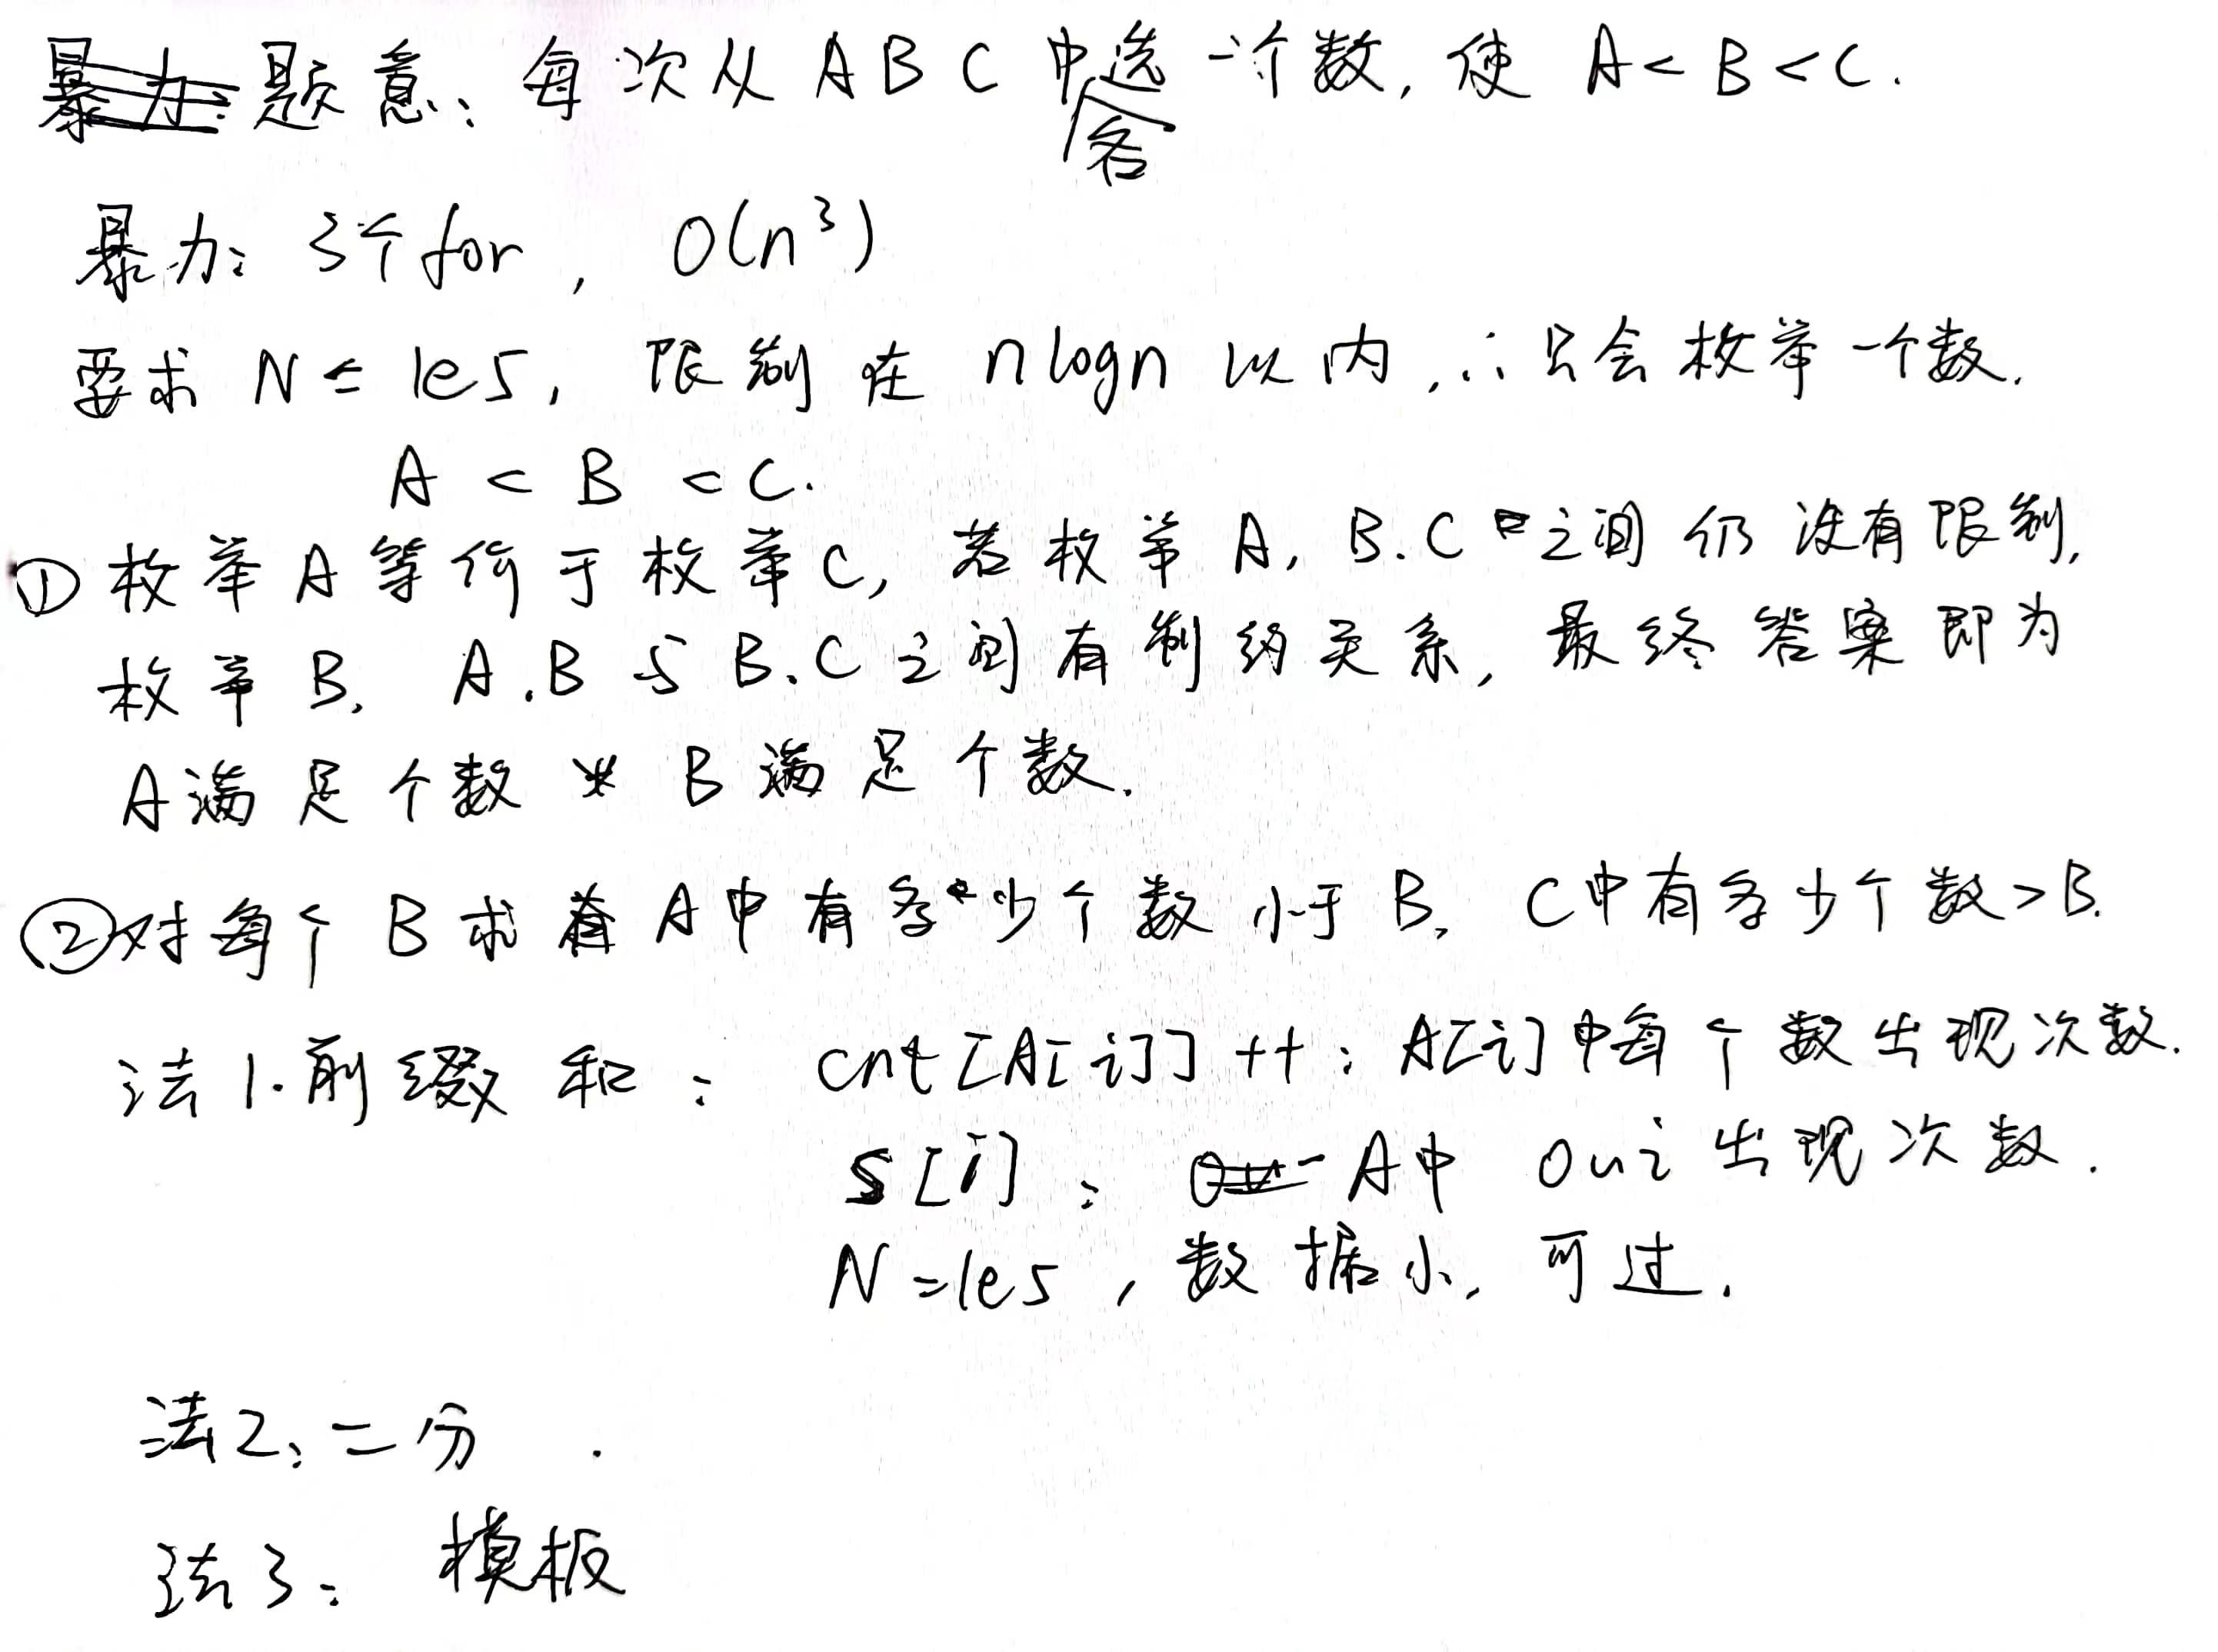 题意: 每次从 A B C 中各选一个数, 使 A < B < C.
暴力: 3个for, O(n³)
要求 N ≤ 1e5, 限制在 nlogn 以内, ∴只会枚举一个数.
A < B < C.
① 枚举A等价于枚举C, 若枚举A, B.C之间仍没有限制,
枚举B, A.B与B.C之间有制约关系, 最终答案即为
A满足个数 * B满足个数.
②对每个B求A中有多少个数小于B, C中有多少个数>B.
法1.前缀和: cnt[A[i]]++: A[i]中每个数出现次数.
s[i]: A中 0~i出现次数.
N=1e5, 数据小, 可过.
法2: 二分.
法3: 模板